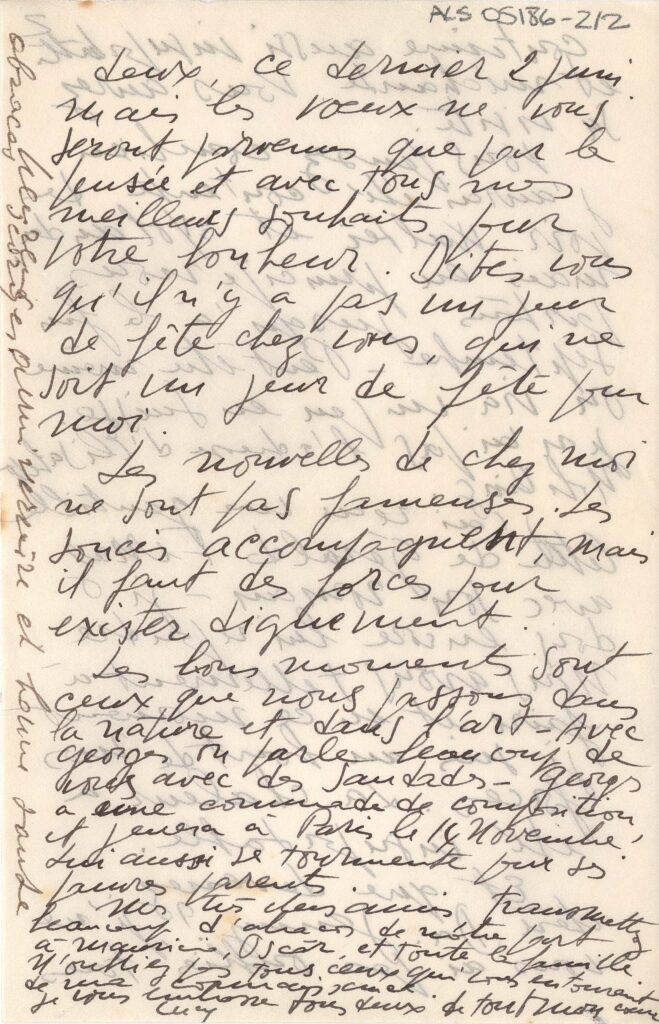 ALS OS186-2/2
deux, ce dernier 2 juin
mais les voeux ne vous
seront parvenus que par la
pensée et avec tous mes
meilleurs souhaits pour
votre bonheur. Dites vous
qu'il n'y a pas un jour
de fête chez vous, qui ne
soit un jour de fête pour
moi.
Les nouvelles de chez moi
ne sont pas fameuses. Les
soucis accompagnent, mais
il faut des forces pour
exister dignement.
Les bons moments sont
ceux que nous passons dans
la nature et dans l'art - Avec
Georges on parle beaucoup de
vous avec des Saudades - Georges
a une commande de composition,
et jouera à Paris le 14 Novembre,
Lui aussi se tourmente pour ses
pauvres parents
Mes très chers amis transmettez
beaucoup d'abraços de notre part
à Mauricio, Oscar, et toute la famille
N'oubliez pas tous ceux qui vous entourent
de ma
je vous embrasse tous deux de tout mon coeur
Lucy
abraços Georges anniversaire et bonne santé